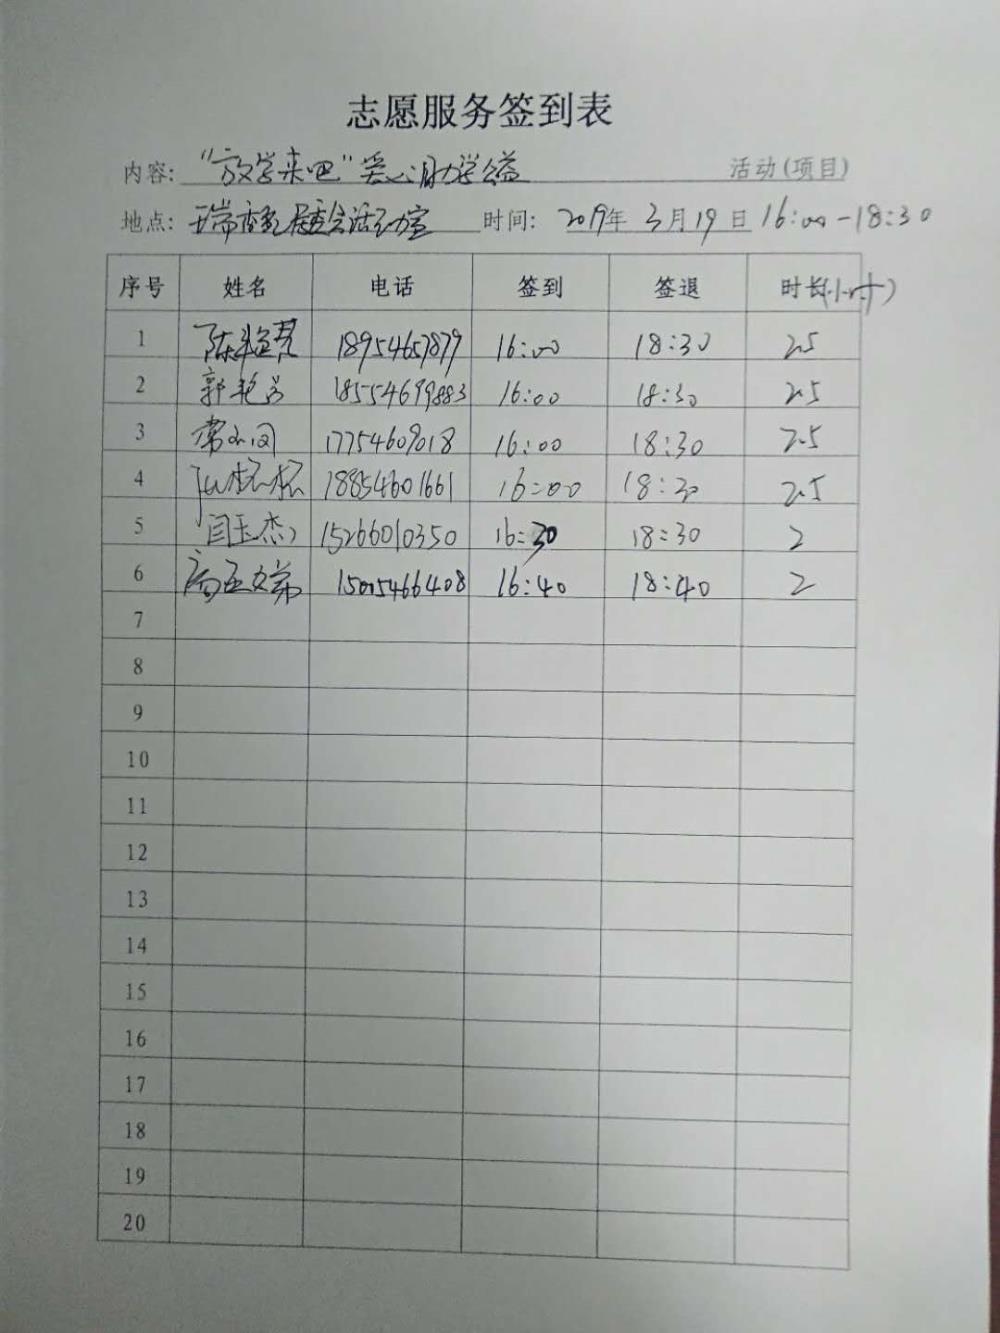 志愿服务签到表
内容: "放学来吧"关心助学公益 活动(项目)
地点: 居委会活动室 时间: 2019年 3月19日 16:00-18:30
序号 姓名 电话 签到 签退 时长(小时)
1 18954657879 16:00 18:30 2.5
2 郭艳芳 18554699883 16:00 18:30 2.5
3 常小闪 17754609018 16:00 18:30 2.5
4 18854601661 16:00 18:30 2.5
5 闫玉杰 15266010350 16:30 18:30 2
6 15005466408 16:40 18:40 2
7
8
9
10
11
12
13
14
15
16
17
18
19
20